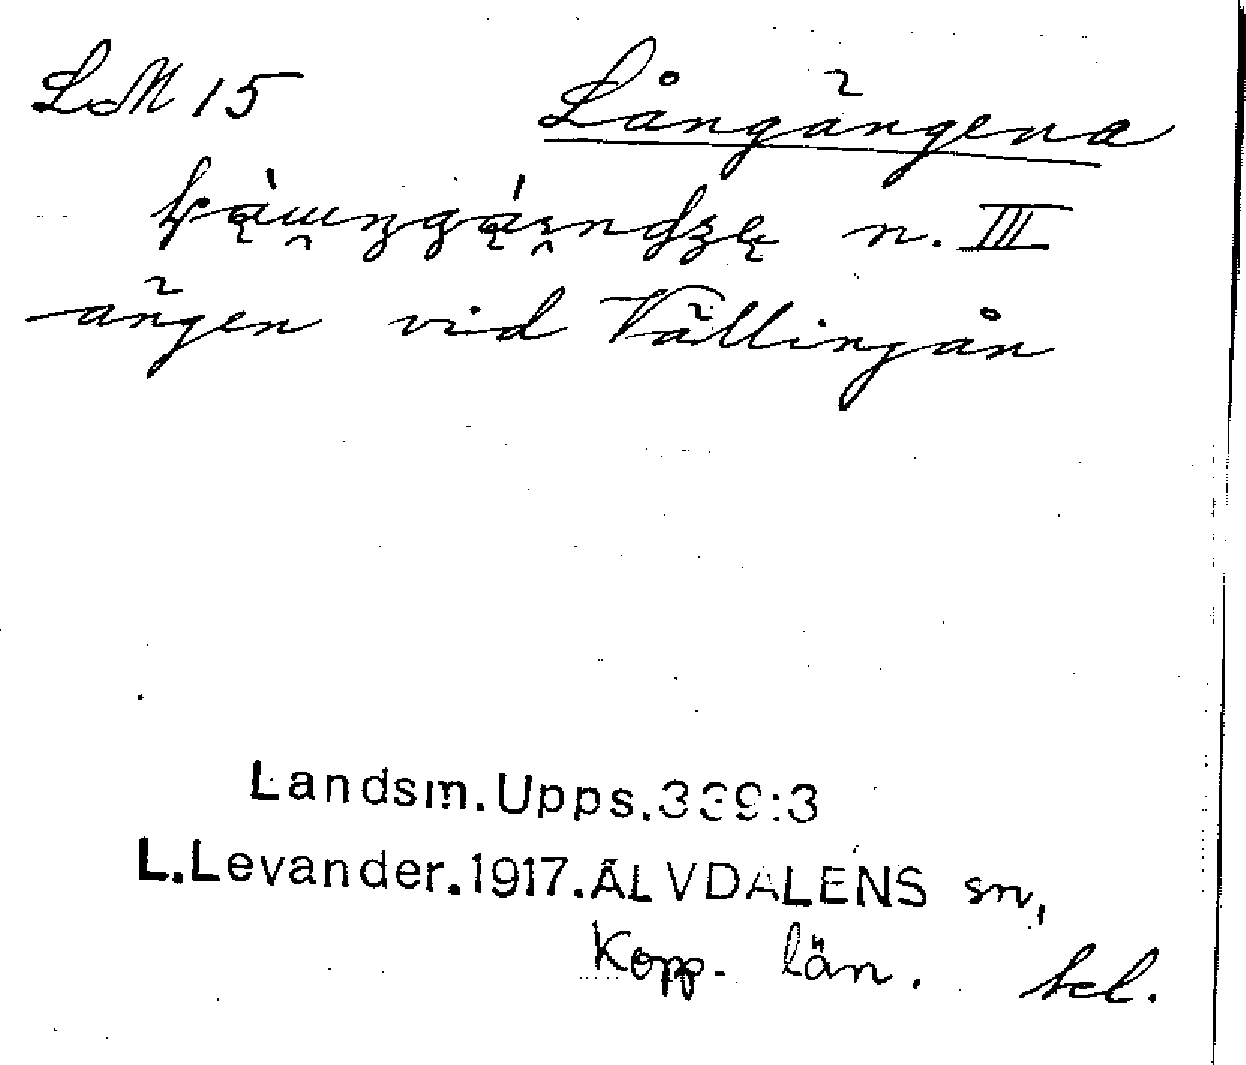 LM 15 Långängena
n. III
ängen vid Vällingån
Landsm.Upps.339:3
L.Levander.1917.ÄLVDALENS sn,
Kopp. län.